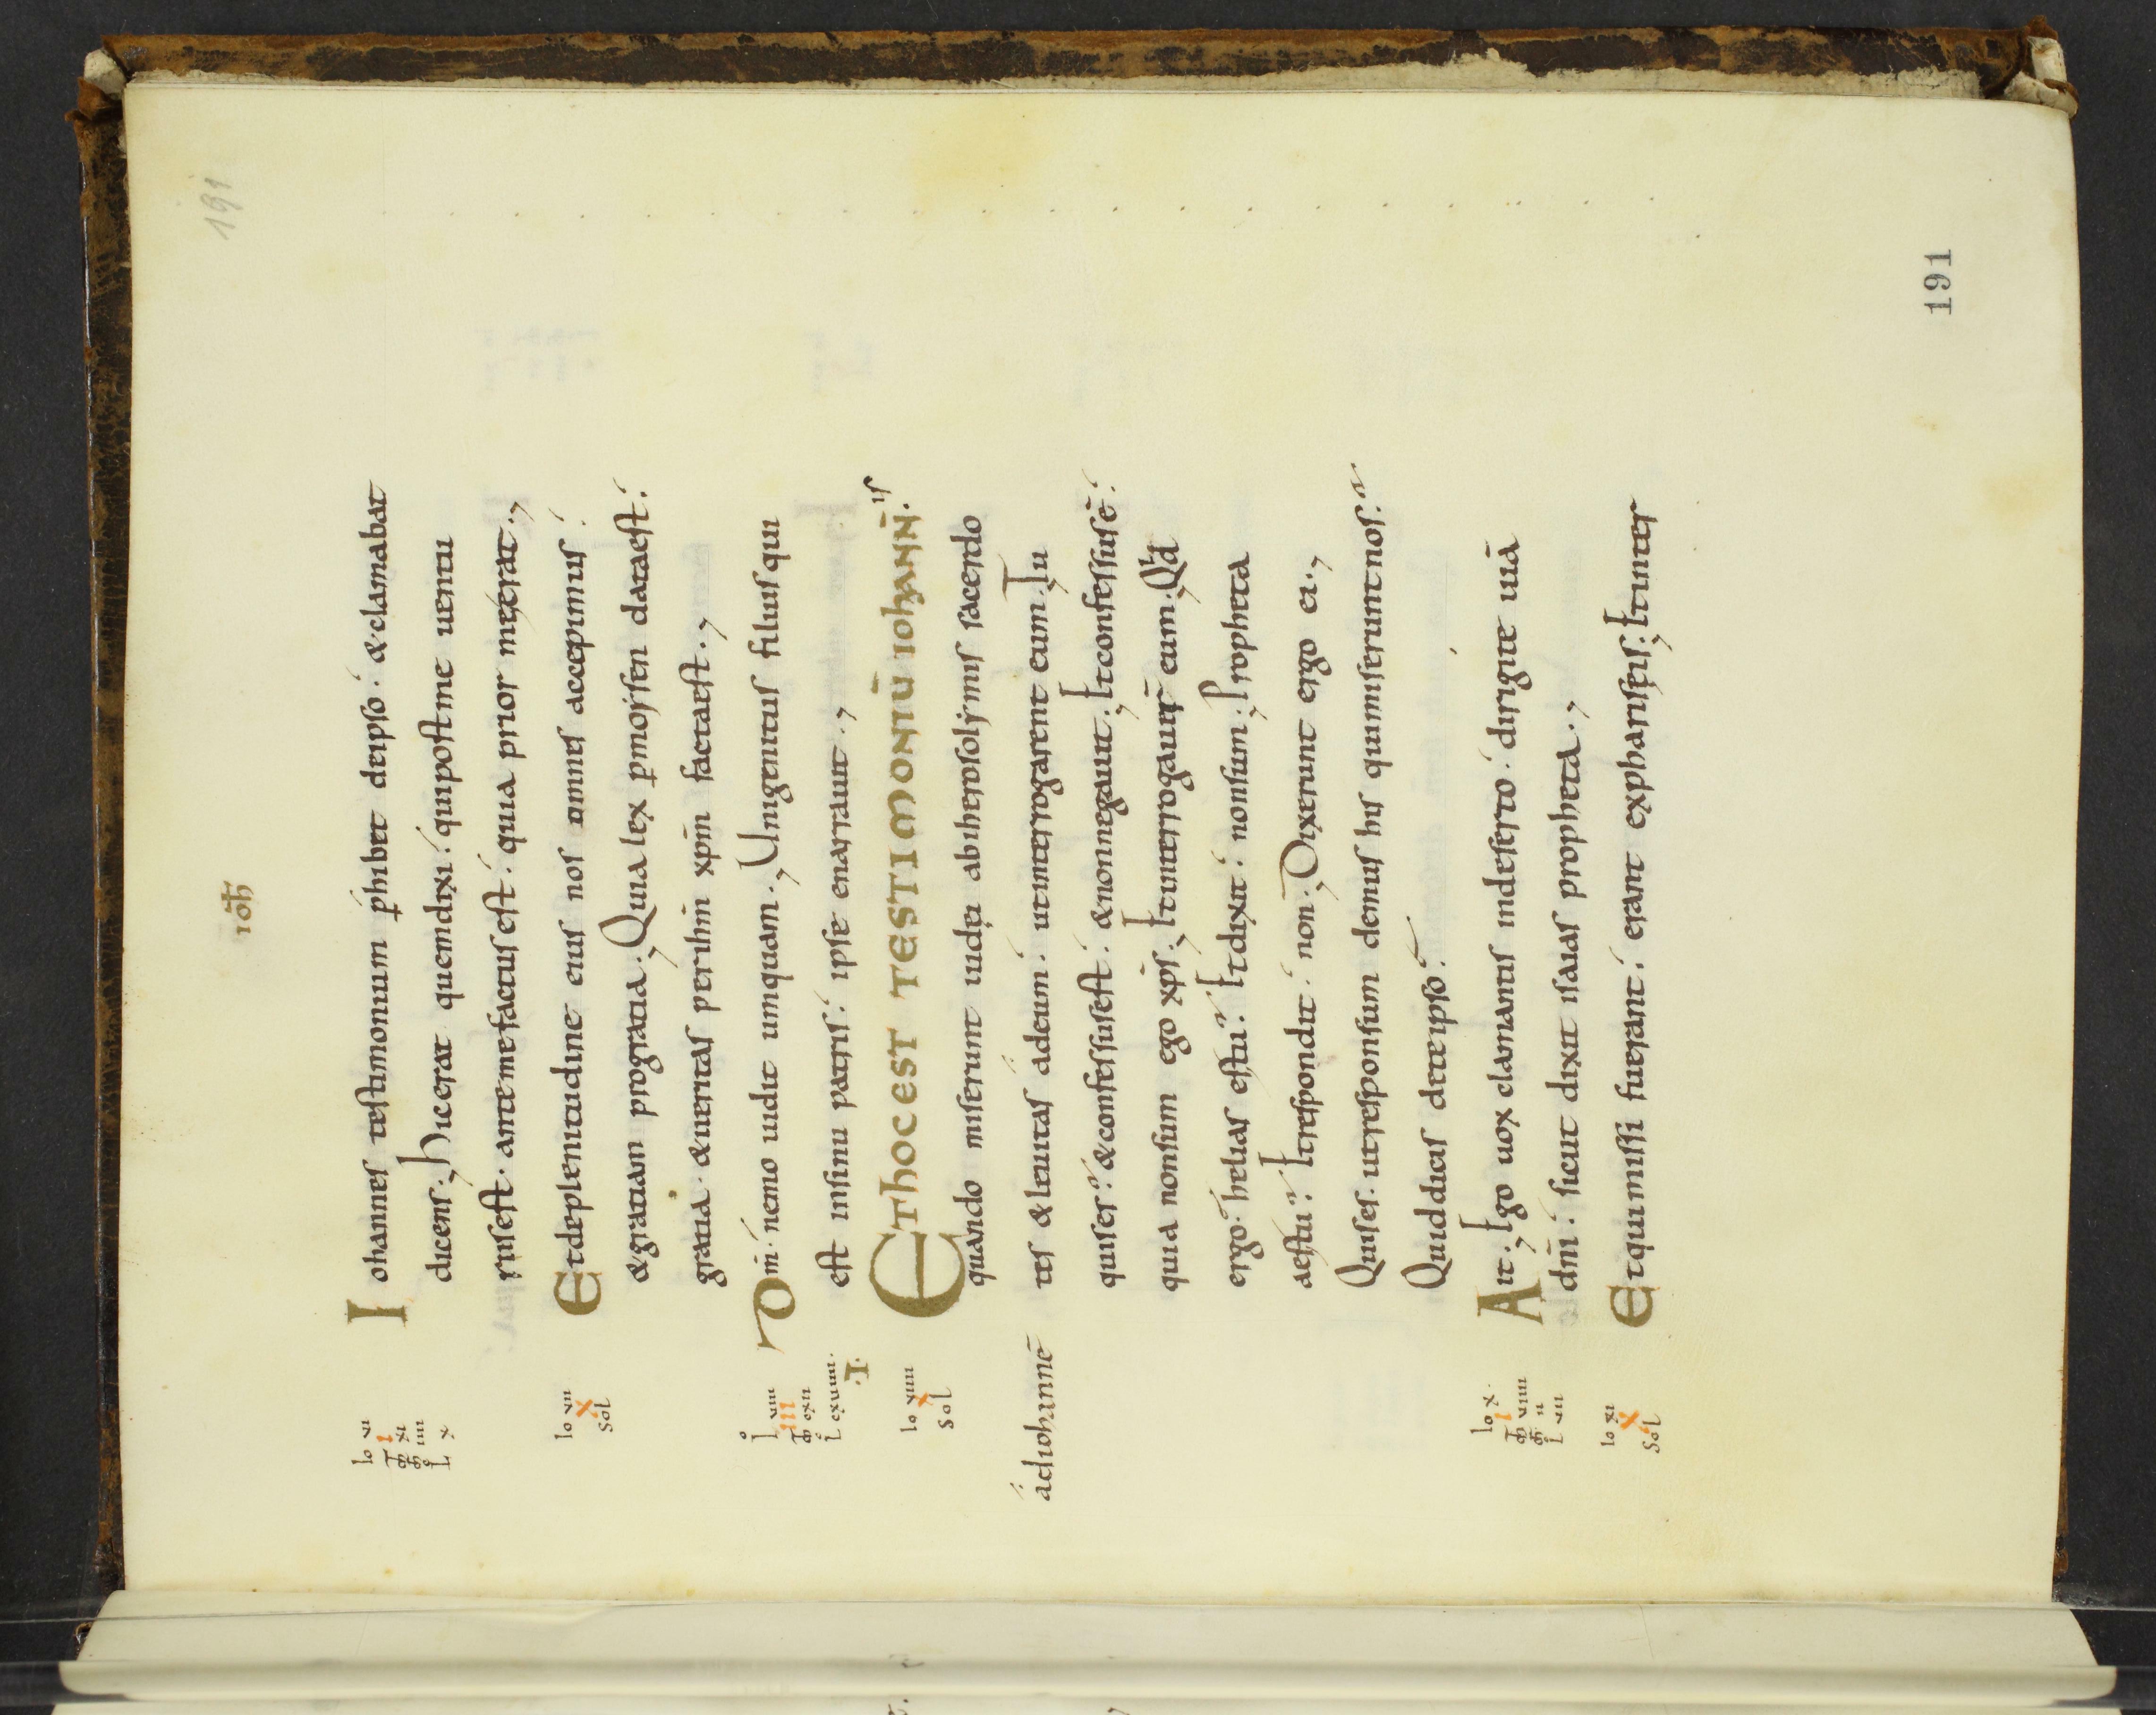 191
ioh̄
Iohannes testimonium phibet deipso. &clamabat
dicens; hicerat quemdixi. quipostme uentu
rusest. antemefactusest. quia prior meerat.,
Etdeplenitudine eius nos omnes accepimus.
&gratiam progratia; Quia lex pmoysen dataest.
gratia. &ueritas perihm̄ xpm̄ factaest.,
Dm̄. nemo uidit umquam; Unigenitus filius qui
est insinu patris. ipse enarrauit.,
EThOCEST TESTIMONIŪ IOhANN̄.is
quando miserunt iudęi abhierosolymis sacerdo
tes &leuitas adeum. utinterrogarent eum; Tu
quises? &confessusest. &nonnegauit; Etconfessusē.
quia nonsum ego xp̄s; Etinterrogauer̄ eum; Qd
ergo. helias estu? Etdixit. nonsum; Propheta
aestu? Etrespondit. non; Dixerunt ergo ei.,
Quises. utresponsum demus his quimiserunt nos?
Quiddicis deteipso?
Ait; Ego uox clamantis indeserto. dirigite uiā
dn̄i. sicut dixit isaias propheta.,
Etquimissi fuerant. erant expharisęis; Etinter
Io vi
I
Io vii
X
Sol
viii
III
cxii
cxviiii.
.I.
Io viiii
X
Sol
ádiohannē
Io x.
I
viiii
ii
vii
Io xi
X
Sol
191